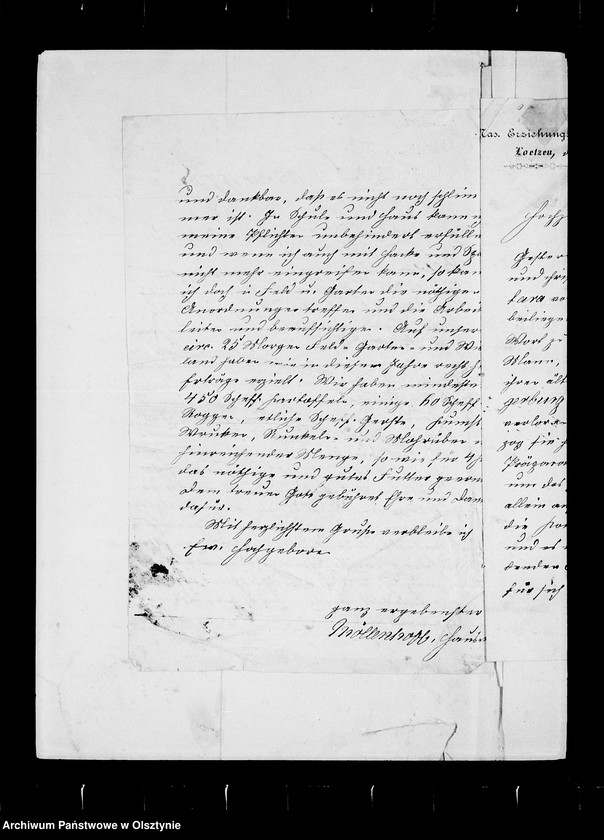 und dankbar, daß es nicht noch schlim
mer ist. In Schule und Haus kann i
meine Pflichten unbehindert erfülle
und wenn ich auch mit Hacke und Spa
nicht mehr eingreifen kann, so kan
ich doch in Feld u. Garten die nöthigen
Anordnungen treffen und die Arbei
leiten und beaufsichtigen. Auf unser
circ. 25 Morgen Feld- Garten- und Wie
land haben wir in diesem Jahre recht h
Erträge erzielt. Wir haben mindesten
450 Scheff. Kartoffeln, einige 60 Scheff
Roggen, etliche Scheff. Gerste, Kumst
Wruken, Runkeln- und Mohrrüben
hinreichender Menge, so wie für 4
das nöthige und gutes Futter
Dem treuen Gott gebühret Ehre und Dan
dafür.
Mit herzlichstem Gruße verbleibe ich
Ew. Hochgeboren
ganz ergebenster
Möllenhoff, Haus
Mas. Erziehungs
Loetzen, d
Hochg
Gestern
und
tara
beiliegen
Wort zu
Mann,
ihrer ält
gesburg
verloren
zog sie
Präparan
um das
allein an
die
und es
für sich
Archiwum Państwowe w Olsztynie